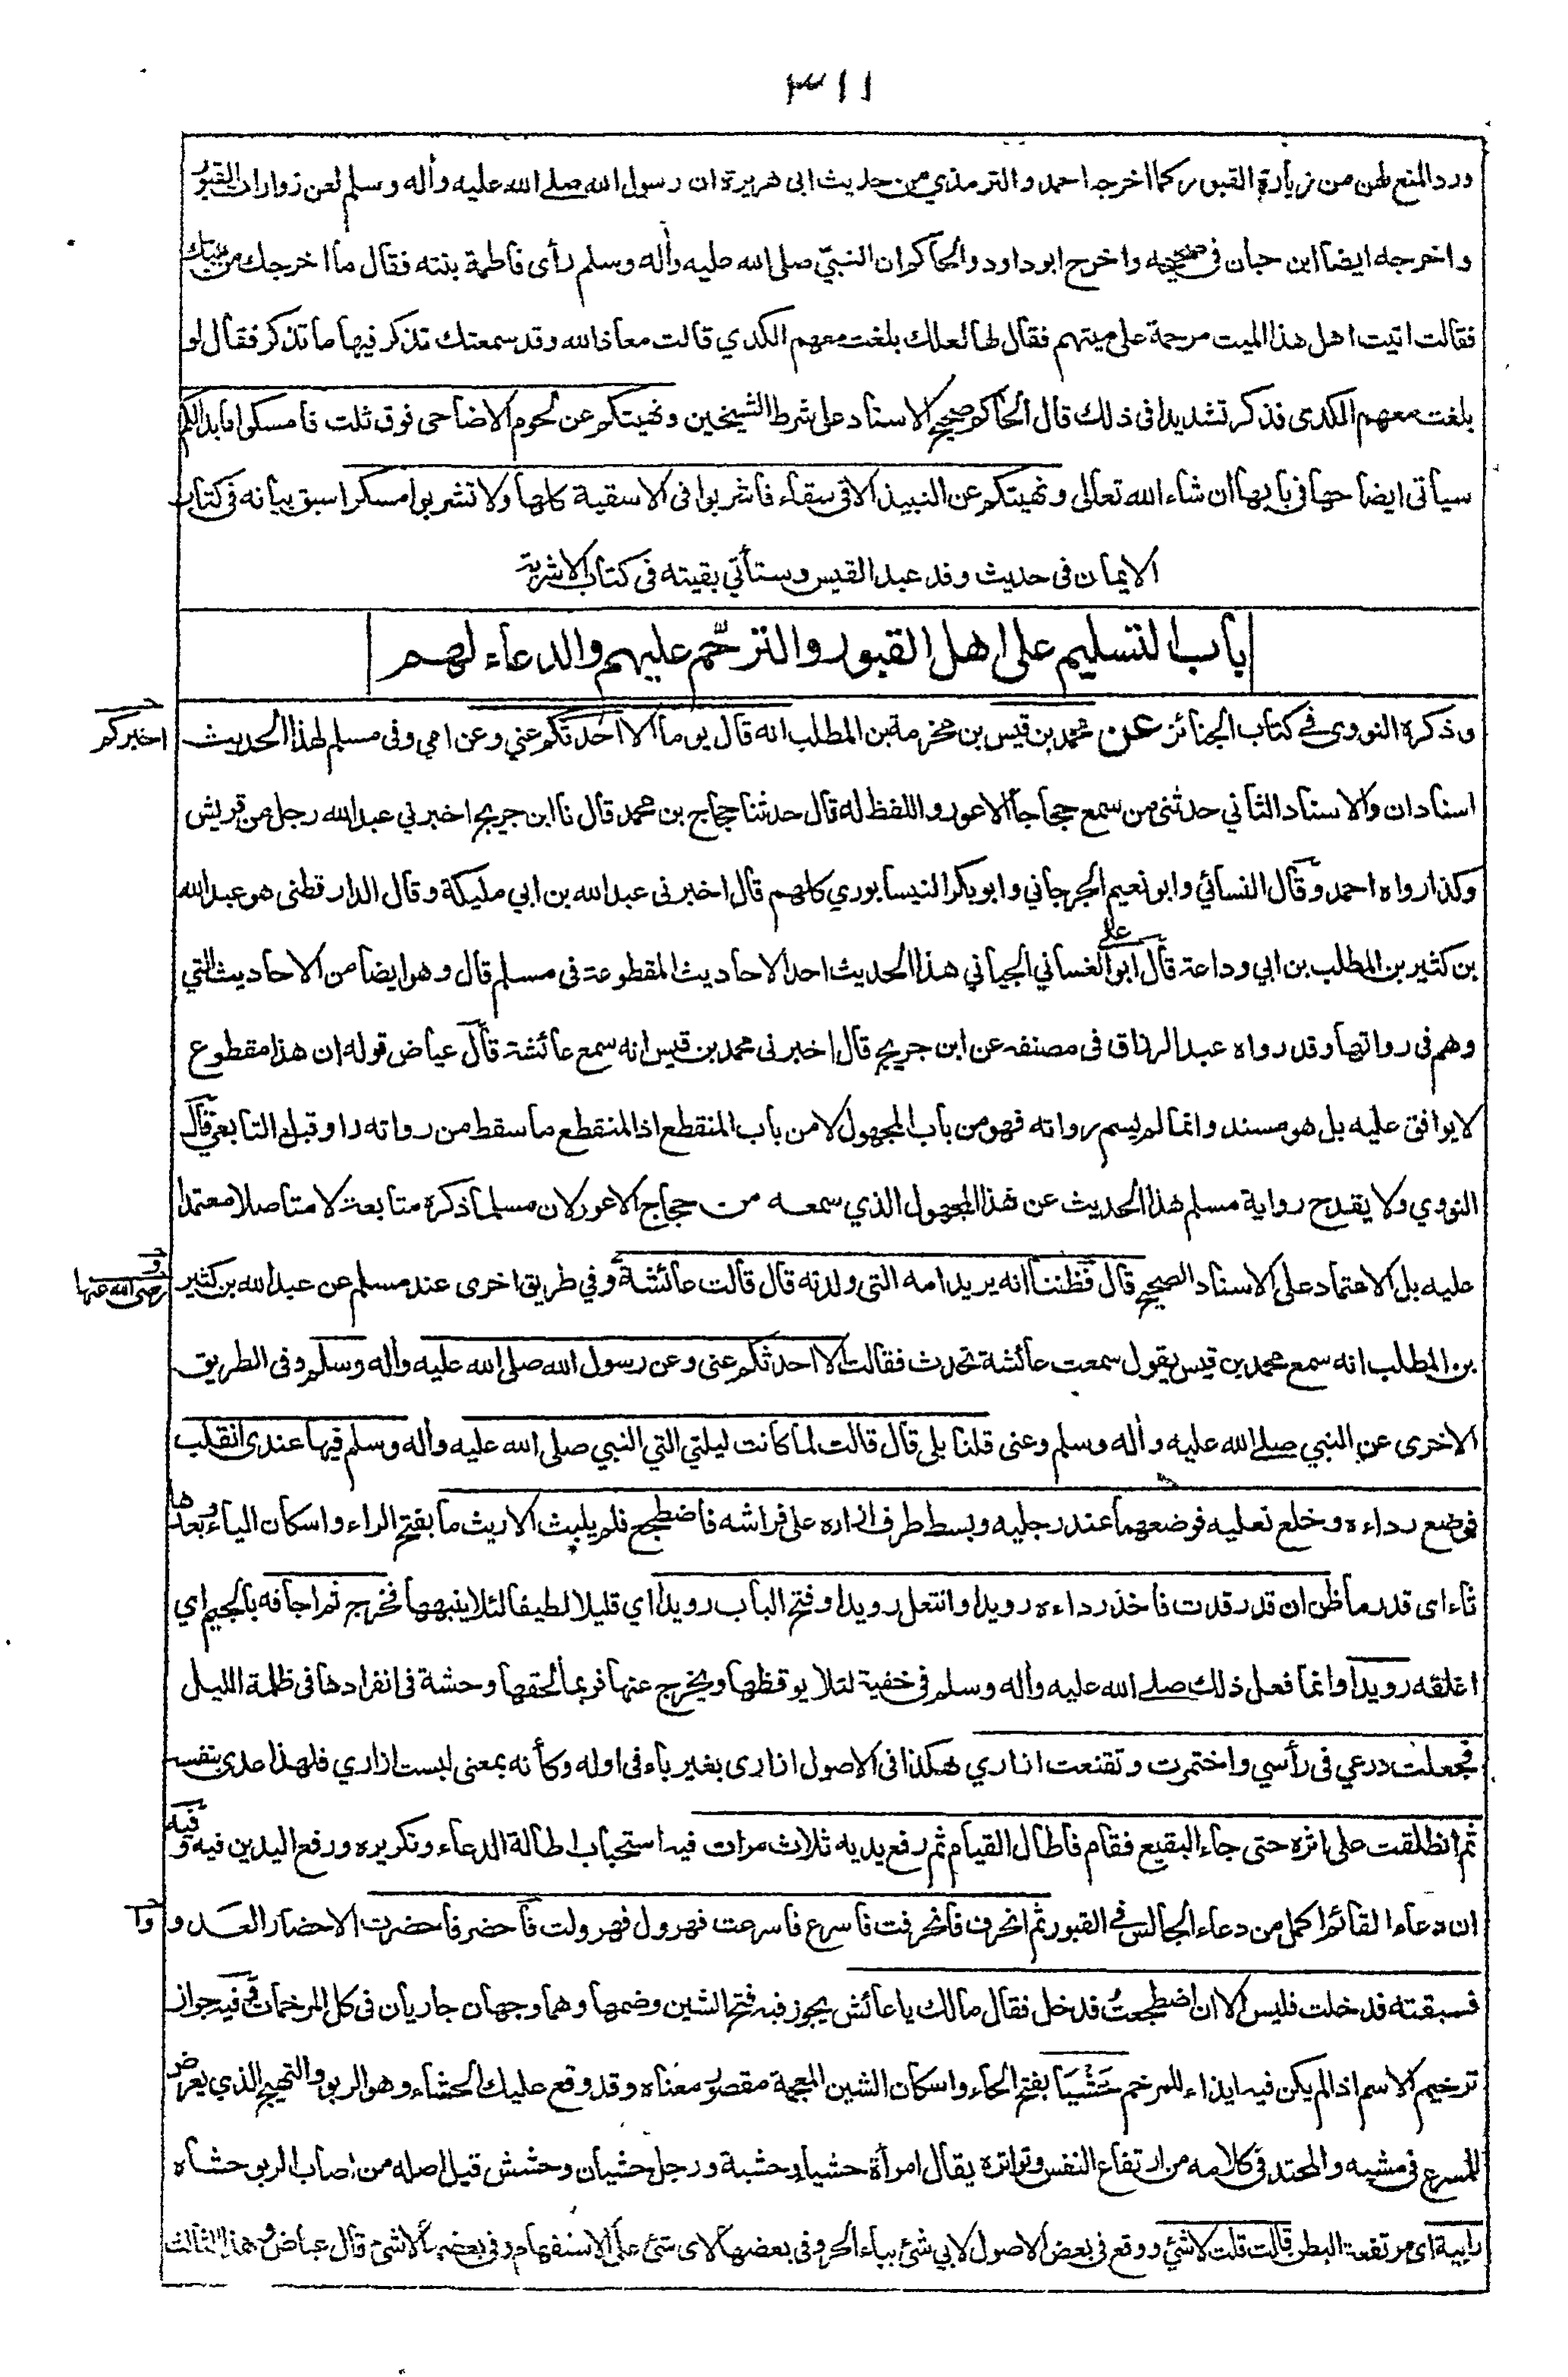 ٣١١
ورد المنع لهن من زيارة القبور كما اخرجه احمد والترمذي من حديث ابى هريرة ان رسول الله صلے الله عليه وأله وسلم لعن زوارات القبور
واخرجه ايضا ابن حبان فى صحيحه واخرج ابو داود والحاكم ان النبيّ صلى الله عليه وأله وسلم رأى فاطمة بنته فقال ما اخرجك من بيتك
فقالت اتيت اهل هذا الميت مرحمة على ميتهم فقال لها لعلك بلغت معهم الكدي قالت معاذ الله وقد سمعتك تذكر فيها ما تذكر فقال لو
بلغت معهم الكدى فذكر تشديدا فى ذلك قال الحاكم صحيح الاسناد على شرط الشيخين ونهيتكم عن لحوم الاضاحى فوق ثلث فامسكوا ما بدا لكم
سياتى ايضاحها فى بابها ان شاء الله تعالى ونهيتكم عن النبيذ الا فى سقاء فاشربوا فى الاسقية كلها ولا تشربوا مسكرا سبق بيانه فى كتاب
الايمان فى حديث وفد عبد القيس وستأتي بقيته فى كتاب الاشربة
باب التسليم على اهل القبور والترحّم عليهم والدعاء لهم
وذكره النووى فے كتاب الجنائز عن محمد بن قيس بن مخرمة بن المطلب انه قال يوما الا احدثكم عني وعن امي وفى مسلم لهذا الحديث
اخبركم
اسنادان والاسناد الثاني حدثنى من سمع حجاجا الاعور واللفظ له قال حدثنا حجاج بن محمد قال نا ابن جريج اخبرني عبد الله رجل من قريش
وكذا رواه احمد وقال النسائي وابو نعيم الجرجاني وابو بكر النيسابوري كلهم قال اخبرنى عبد الله بن ابي مليكة وقال الدارقطنى هو عبد الله
بن كثير بن المطلب بن ابي وداعة قال ابو على الغساني الجياني هذا الحديث احد الاحاديث المقطوعة فى مسلم قال وهو ايضا من الاحاديث التي
وهم فى رواتها وقد رواه عبد الرزاق فى مصنفه عن ابن جريج قال اخبرنى محمد بن قيس انه سمع عائشة قال عياض قوله ان هذا مقطوع
لا يوافق عليه بل هو مسند وانما لم يسم رواته فهو من باب المجهول لا من باب المنقطع اذ المنقطع ما سقط من رواته راو قبل التابعي قال
النووي ولا يقدح رواية مسلم هذا الحديث عن هذا المجهول الذي سمعه من حجاج الاعور لان مسلما ذكره متابعة لا متاصلا معتمدا
عليه بل الاعتماد على الاسناد الصحيح قال فظننا انه يريد امه التى ولدته قال قالت عائشة وفي طريق اخرى عند مسلم عن عبد الله بن كثير
رضى الله عنها
بن المطلب انه سمع محمد بن قيس يقول سمعت عائشة تحدث فقالت الا احدثكم عنى وعن رسول الله صلى الله عليه وأله وسلم وفى الطريق
الاخرى عن النبي صلے الله عليه وأله وسلم وعنى قلنا بلى قال قالت لما كانت ليلتي التي النبي صلى الله عليه وأله وسلم فيها عندى انقلب
فوضع رداءه وخلع نعليه فوضعهما عند رجليه وبسط طرف ازاره على فراشه فاضطجع فلم يلبث الا ريث ما بفتح الراء واسكان الياء وبعدها
ثاء اى قدر ما ظن ان قد رقدت فاخذ رداءه رويدا وانتعل رويدا وفتح الباب رويدا اي قليلا لطيفا لئلا ينبهها فخرج ثم اجافه بالجيم اي
اغلقه رويدا وانما فعل ذلك صلے الله عليه وأله وسلم فى خفية لئلا يوقظها ويخرج عنها فربما لحقها وحشة فى انفرادها فى ظلمة الليل
فجعلت درعي فى رأسي واختمرت وتقنعت ازاري هكذا فى الاصول ازارى بغير باء فى اوله وكأنه بمعنى لبست ازاري فلهذا عدى بنفسه
ثم انطلقت على اثره حتى جاء البقيع فقام فاطال القيام ثم رفع يديه ثلاث مرات فيه استحباب اطالة الدعاء وتكريره ورفع اليدين فيه وفيه
ان دعاء القائم اكمل من دعاء الجالس فے القبور ثم انحرف فانحرفت فاسرع فاسرعت فهرول فهرولت فاحضر فاحضرت الاحضار العدو
فسبقته فدخلت فليس الا ان اضطجعتُ فدخل فقال مالك يا عائش يجوز فيه فتح الشين وضمها وهما وجهان جاريان فى كل المرخمات وفيه جواز
ترخيم الاسم اذا لم يكن فيه ايذاء للمرخم حَشْيَا بفتح الحاء واسكان الشين المعجمة مقصور معناه وقد وقع عليك الحشاء وهو الربو والتهيج الذي يعرض
للمسرع فى مشيه والمحتد فى كلامه من ارتفاع النفس وتواتره يقال امرأة حشياء وحشية ورجل حشيان وحشش قيل اصله من اصاب الربو حشاه
رابية اى مرتفعة البطن قالت قلت لا شئ ووقع فى بعض الاصول لابي شئ بباء الجر وفى بعضها لاى شئ على الاستفهام وفى بعضها لا شئ قال عياض وهذا الثالث